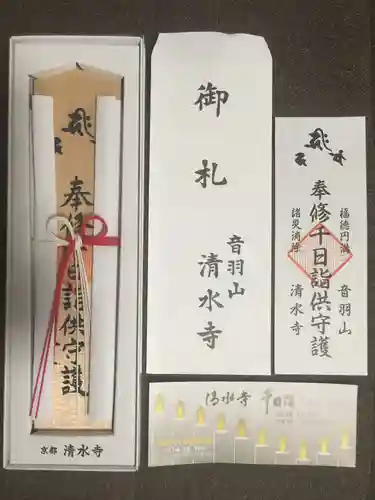 奉修千日詣供守護
京都 清水寺
御札
音羽山
清水寺
福徳円満
奉修千日詣供守護
諸災消除
音羽山
清水寺
清水寺 千日